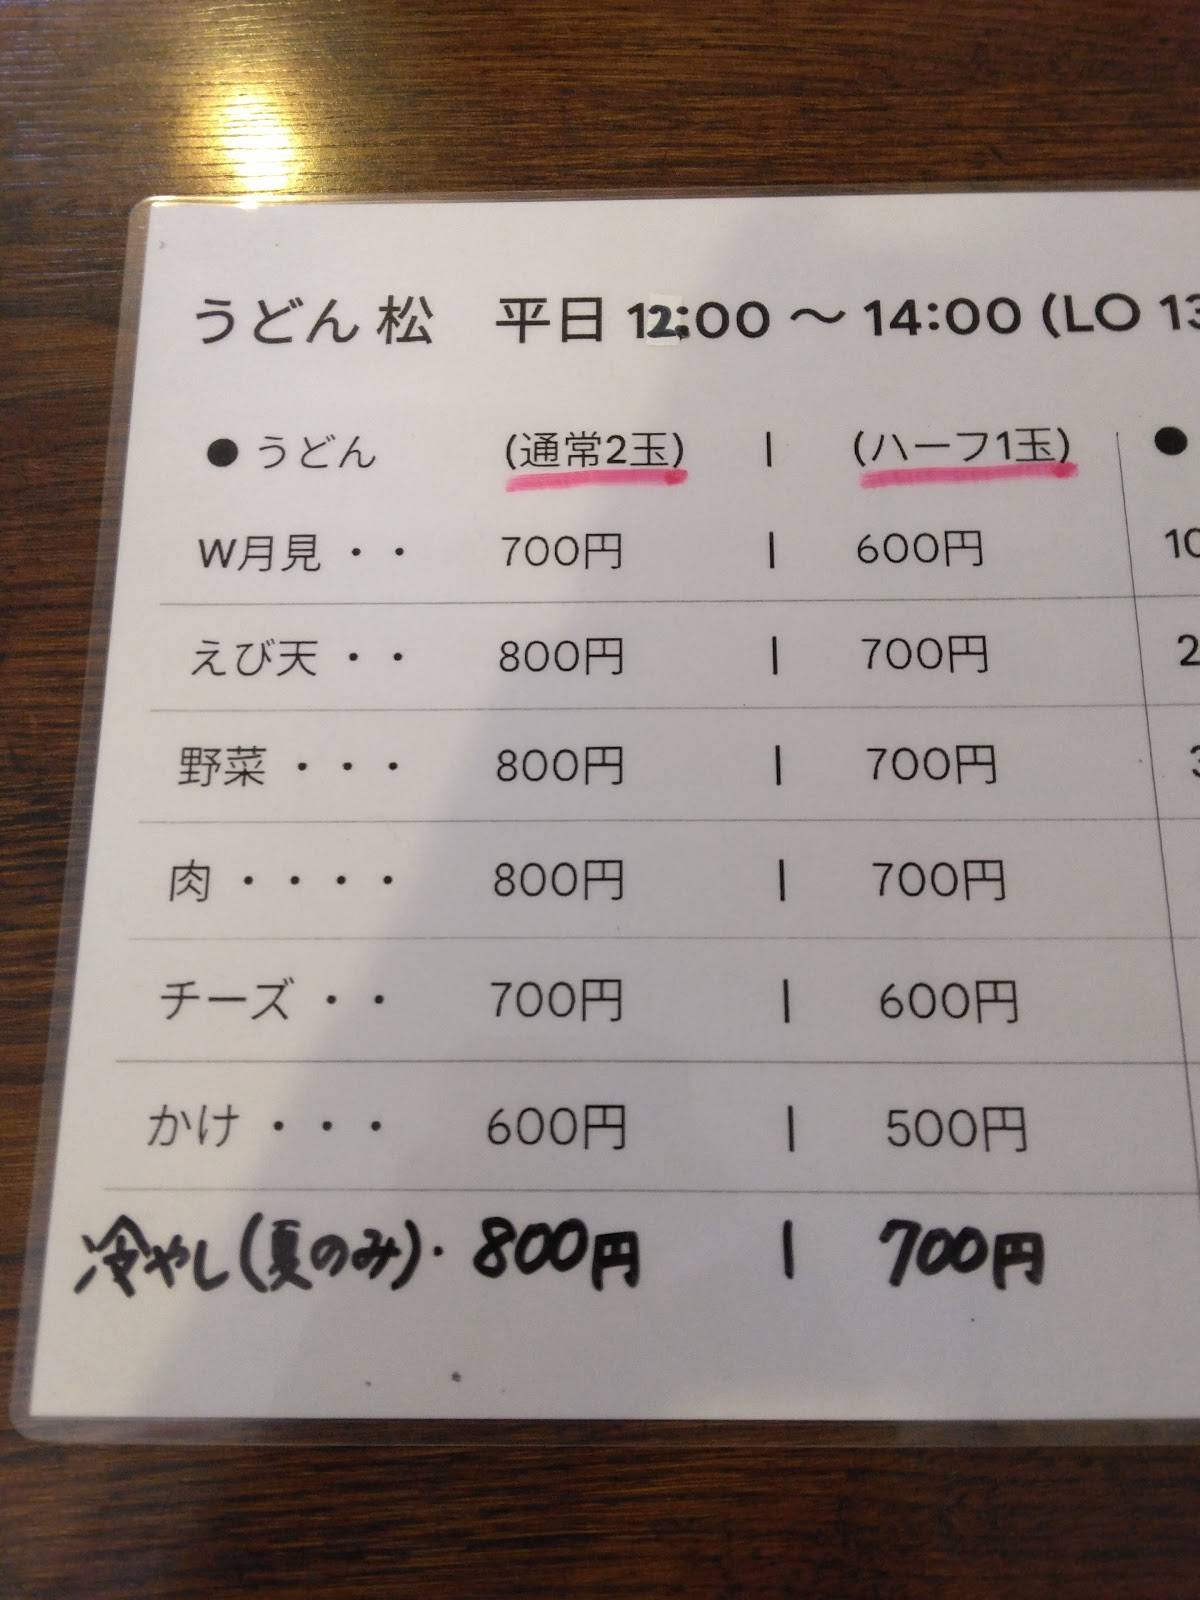 うどん 松　平日 12:00 〜 14:00 (LO 13
● うどん　(通常2玉)　|　(ハーフ1玉)　●
W月見 ・・　700円　|　600円　10
えび天 ・・　800円　|　700円　2
野菜 ・・・　800円　|　700円　3
肉 ・・・・　800円　|　700円
チーズ ・・　700円　|　600円
かけ ・・・　600円　|　500円
冷やし(夏のみ)・　800円　|　700円